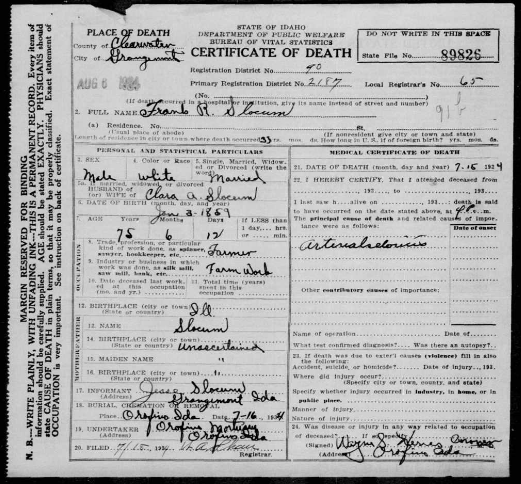 STATE OF IDAHO
DEPARTMENT OF PUBLIC WELFARE
BUREAU OF VITAL STATISTICS
CERTIFICATE OF DEATH
DO NOT WRITE IN THIS SPACE
State File No. 89826
PLACE OF DEATH
County of Clearwater
City of Grangemont
AUG 6 1934
Registration District No. 90
Primary Registration District No. 2187
Local Registrar's No. 65
(No.
(If death occurred in a hospital or institution, give its name instead of street and number)
2. FULL NAME Frank R. Slocum
(a) Residence. No. St.
(Usual place of abode)
(If nonresident give city or town and state)
Length of residence in city or town where death occurred 33 yrs. mos. ds. How long in U. S., if of foreign birth? yrs. mos. ds.
PERSONAL AND STATISTICAL PARTICULARS
3. SEX
4. Color or Race
5. Single, Married, Widowed, or Divorced (write the word)
Male White Married
5a. If married, widowed or divorced
HUSBAND of
(or) WIFE of Clara A. Slocum
6. DATE OF BIRTH (month, day, and year)
Jan 3-1859
7. AGE Years Months Days If LESS than
1 day, hrs.
or min.
75 6 12
8. Trade, profession, or particular
kind of work done, as spinner,
sawyer, bookkeeper, etc. Farmer
9. Industry or business in which
work was done, as silk mill,
saw mill, bank, etc. Farm Work
10. Date deceased last worked at this occupation
11. Total time (years) spent in this occupation
OCCUPATION
12. BIRTHPLACE (city or town) Ill
(State or country)
13. NAME Slocum
14. BIRTHPLACE (city or town)
(State or country) Unascertained
15. MAIDEN NAME "
16. BIRTHPLACE (city or town) "
(State or country)
17. INFORMANT Jesse Slocum
(Address) Grangemont Ida
18. BURIAL, CREMATION OR REMOVAL
Place Orofino Ida Date 7-16 1934
19. UNDERTAKER Orofino Mortuary
(Address) Orofino Ida
20. FILED 7/15 1934
Registrar.
MEDICAL CERTIFICATE OF DEATH
21. DATE OF DEATH (month, day and year) 7-15 1934
22. I HEREBY CERTIFY, That I attended deceased from
193 to 193
I last saw h alive on 193 death is said
to have occurred on the date stated above, at m.
The principal cause of death and related causes of importance were as follows: Date of onset
Other contributory causes of importance:
Name of operation Date of
What test confirmed diagnosis? Was there an autopsy?
23. If death was due to external causes (violence) fill in also
the following:
Accident, suicide, or homicide? Date of injury 193
Where did injury occur?
(Specify city or town, county, and state)
Specify whether injury occurred in industry, in home, or in
public place.
Manner of injury
Nature of injury
24. Was disease or injury in any way related to occupation
of deceased? If so, specify
(Signed)
(Address) Orofino Ida
MARGIN RESERVED FOR BINDING
N. B.—WRITE PLAINLY, WITH UNFADING INK—THIS IS A PERMANENT RECORD. Every item of
information should be carefully supplied. AGE should be stated EXACTLY. PHYSICIANS should
state CAUSE OF DEATH in plain terms, so that it may be properly classified. Exact statement of
OCCUPATION is very important. See instruction on back of certificate.